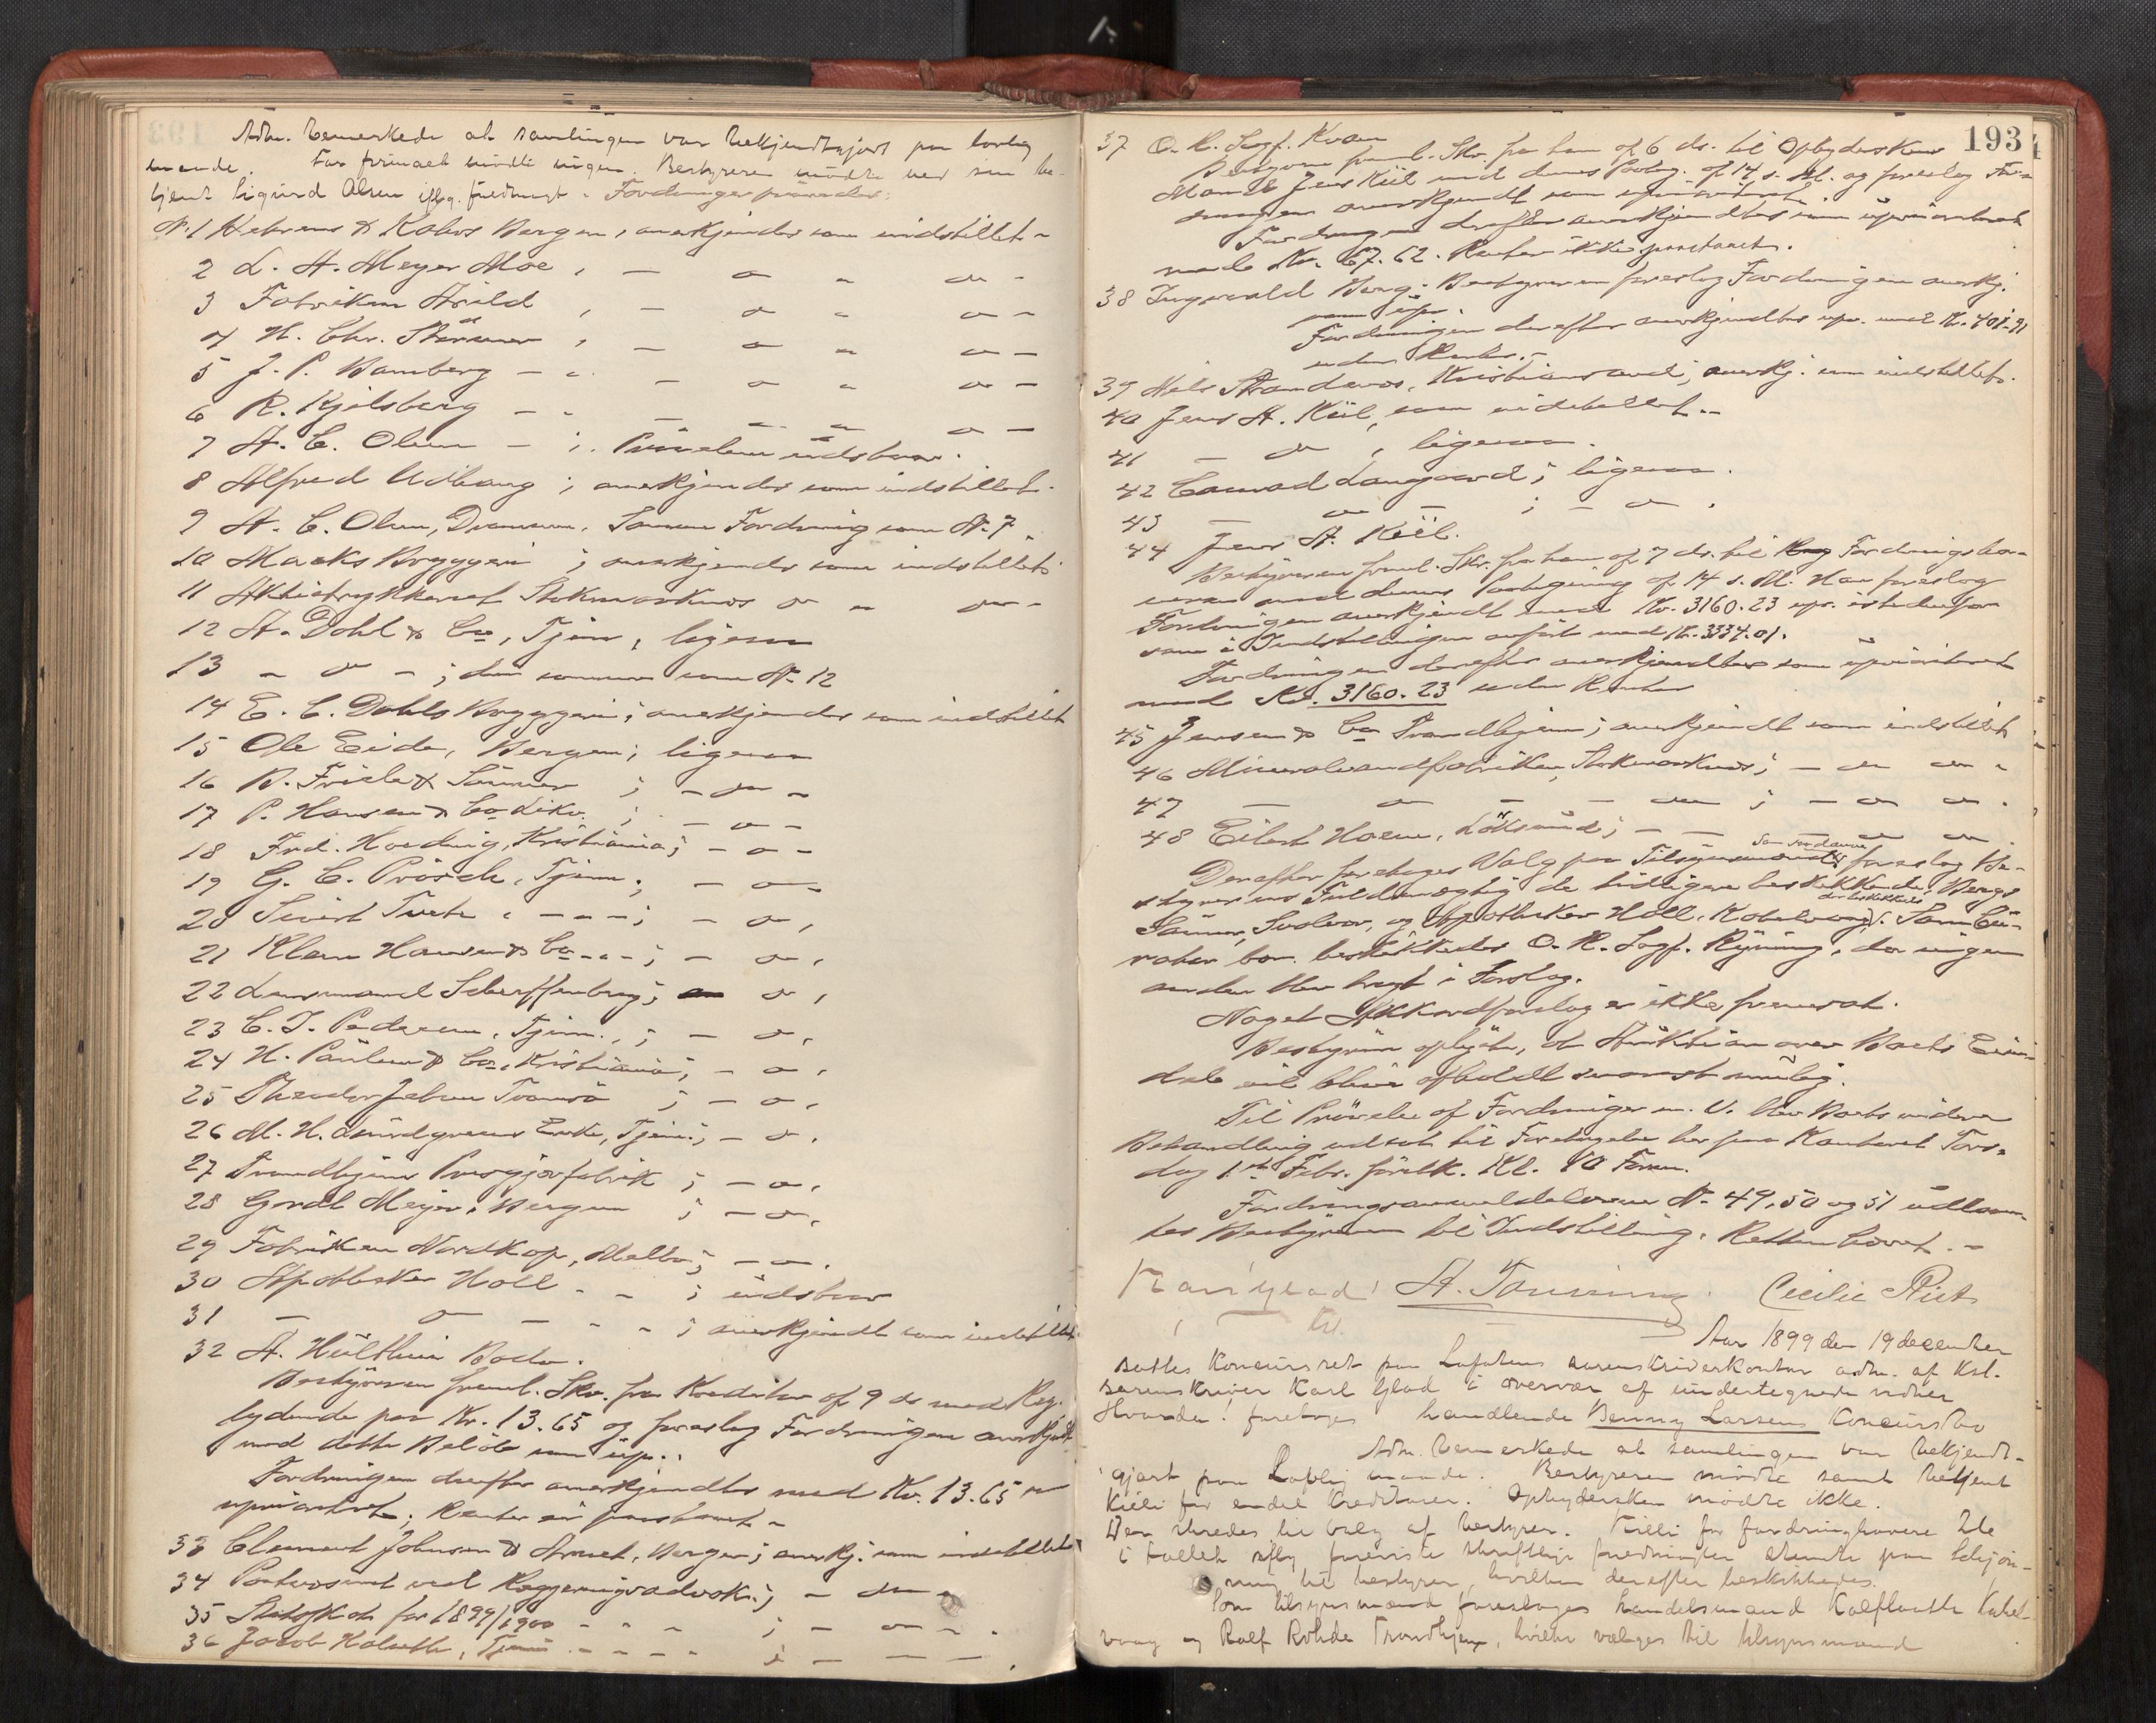 Adm. bemerkede at samlingen var bekjendtgjort paa lovlig
maade. For falliten mødte ingen. Bestyreren mødte ved sin be-
tjent Sigurd Olsen iflg. fuldmagt. Fordringer prøvedes:
N. 1 Behrens & Kahrs Bergen, anerkjendes som indstillet -
2 L. H. Meyer Moe, — " — " —
3 Fabriken Arild, — " — " —
4 H. Chr. Størmer, — " — " —
5 J. P. Bamberg — — " — " —
6 R. Kjelsberg — — " — " —
7 A. C. Olsen — ; Prøvelsen udstaar.
8 Alfred Udbang ; anerkjendes som indstillet.
9 A. C. Olsen, Drammen, Samme Fordring som N. 7.
10 Macks Bryggeri ; anerkjendes som indstillet
11 Aktietrykkeriet Stokmarknes do " do -
12 A. Dahl & Co, Tjem, ligesaa
13 - do - ; den samme som N. 12
14 E. C. Dahls Bryggeri ; anerkjendes som indstillet
15 Ole Eide, Bergen ; ligesaa
16 B. Friele & Sønner ; - do -
17 P. Hansen & Co Likv. ; - do -
18 Frd. Hovding, Kristiania ; - do -
19 G. C. Prösch, Tjem. ; - do -
20 Sivert Tveten, - " - ; - do,
21 Klaus Hansen & Co - " - ; - do,
22 Lensmand Scheffenberg ; do,
23 C. J. Pedersen, Tjem., ; - do,
24 H. Paulsen & Co, Kristiania ; - do,
25 Theodor Jebsen Tromsø ; - do,
26 M. H. Lundgreens Enke, Tjem. ; - do,
27 Trondhjems Presgjærfabrik ; - do,
28 Gerdt Meyer, Bergen ; - do,
29 Fabriken Nordkap, Melbo ; - do.
30 Apotheker Holl - - ; udstaar
31 — do — - - ; anerkjendt som indstillet.
32 A. Hulthin Bodø.
Bestyreren freml. Skr. fra Kreditor af 9 ds med Reg.
lydende paa Kr. 13.65 og foreslog Fordringen anerkjendt
med dette Beløb som upr.
Fordringen derefter anerkjendtes med Kr. 13.65
uprioriteret ; Renter er paastaaet -
33 Clement Johnsen & Arnet, Bergen ; anerkj. som indstillet
34 Postvæsenet ved Regjeringsadvok. ; - do -
35 Statsskat for 1899/1900 - - - ; - do -
36 Jacob Halseth, Tjem - - - - ; — — —
193
37 O. R. Sagf. Kvam
Bestyreren freml. Skr. fra ham af 6 ds. til Opbyderskens
Mand Jens Kiil med dennes Paateg. af 14 s. M. og foreslog For-
dringen anerkjendt som uprioriteret
Fordringen derefter anerkjendtes som uprioriteret
med Kr. 67.62. Renter ikke paastaaet.
38 Ingvald Berg. Bestyreren foreslog Fordringen anerkj.
som upr.
Fordringen derefter anerkjendtes upr. med Kr. 401.91
uden Renter. -
39 Nils Strandenæs, Kristiansund, anerkj. som indstillet.
40 Jens A. Kiil, som indstillet. -
41 — do , ligesaa.
42 Conrad Langaard ; ligesaa.
43 — do — ; - do .
44 Jens A. Kiil.
Bestyreren freml. Skr. fra ham af 7 ds. til Fordringsha-
veren med dennes Paategning af 14 s. M. Han foreslog
Fordringen anerkjendt med Kr. 3160.23 upr. istedenfor
som i Indstillingen anført med Kr. 3334.01.
Fordringen derefter anerkjendtes som uprioriteret
med Kr. 3160.23 uden Renter
45 Jensen & Co Trondhjem ; anerkjendt som indstillet
46 Mineralvandfabriken, Stokmarknes ; - do do -
47 — do — — do ; - do do .
48 Eilert Hoem, Løksund ; — — do do .
Derefter foretoges Valg paa Tilsynsmænd. Som saadanne foreslog Be-
styrerens Fuldmægtig de tidligere beskikkede, Bergs
Sønner, Svolvær, og Apotheker Holl, Kabelvaag, der beskikkedes. Som Cu-
rator bon. beskikkedes O. R. Sagf. Ryning, da ingen
anden blev bragt i Forslag.
Noget Akkordforslag er ikke fremsat.
Bestyreren oplyste, at Auktion over Boets Eien-
dele vil blive afholdt snarest mulig.
Til Prøvelse af Fordringer m. V. blev Boets videre
Behandling udsat til Foretagelse her paa Kontoret Tors-
dag 1ste Febr. førstk. Kl. 10 Form.
Fordringsanmeldelserne N. 49, 50 og 51 udleve-
res Bestyreren til Indstilling. Retten hævet. -
Karl Glad A. Tønning Cecilie Riet
Aar 1899 den 19 december
sattes Koncursret paa Lofotens sorenskriverkontor adm. af Kst.
sorenskriver Karl Glad i overvær af undertegnede vidner
Hvorda! foretoges handlende Benny Larsens Koncursbo
Adm. bemerkede at samlingen var bekjendt-
gjort paa Lovlig maade. Bestyreren mødte samt betjent
Killi for endel Kreditorer. Opbydersken mødte ikke.
Der skredes til valg af bestyrer. Killi for fordringhavere
i følge iflg. foreviste skriftlige fuldmagter stemte paa Schjøn-
ning til bestyrer, hvilken derefter beskikkedes.
Som tilsynsmænd foresloges handelsmand Kalfloth Kabel-
vaag og Ralf Rohde Trondhjem, hvilke valges til tilsynsmænd